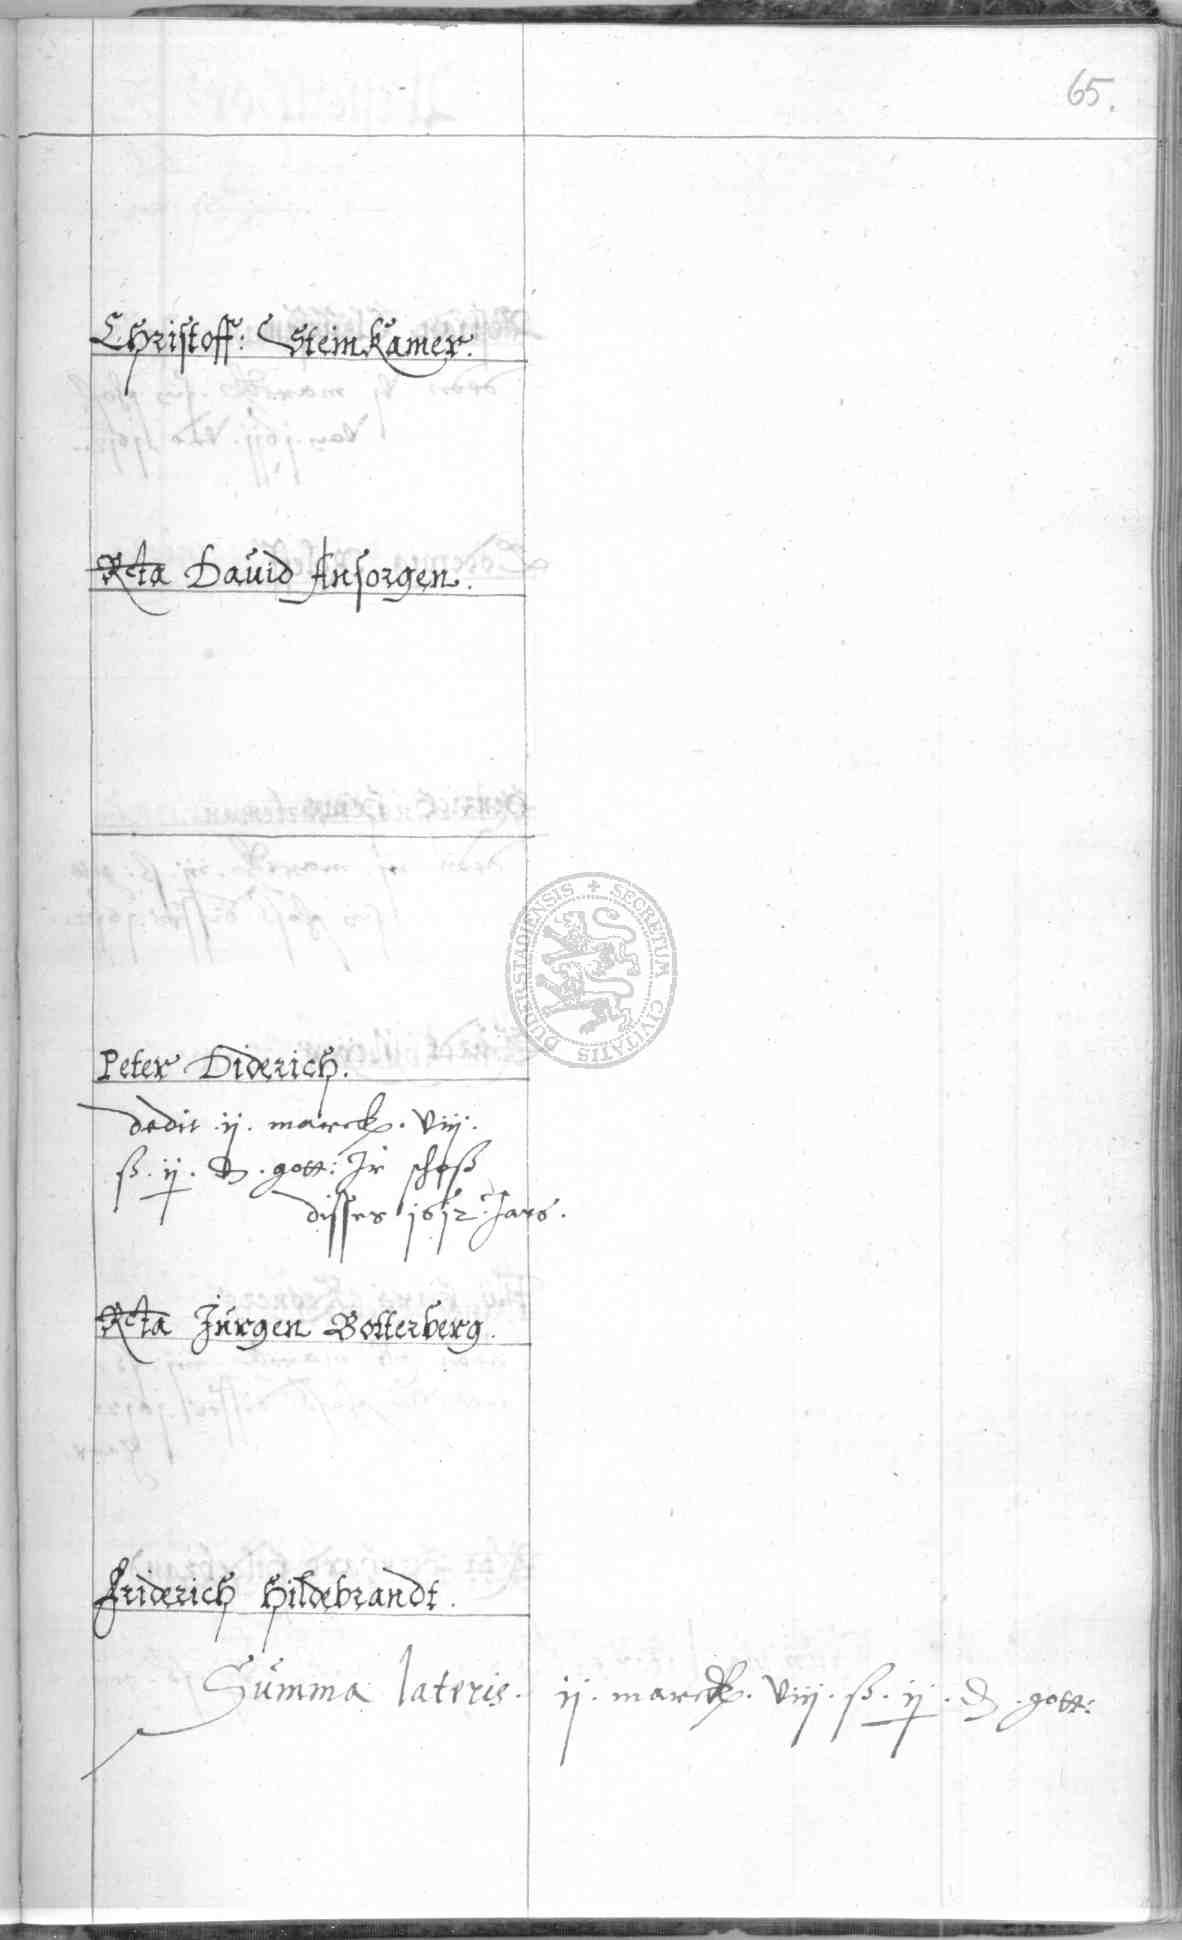 65.
Christoff: Steinkamer.
Rcta David Ansorgen.
SECRETUM CIVITATIS DUDERSTADIENSIS
Peter Diderich.
dedit ij. marck. viij.
ß. ij. ₰. gott: Ir schoß
disses 1612. Jars.
Rcta Jürgen Botterberg.
Friderich Hildebrandt.
Summa lateris. ij. marck. viij. ß. ij. ₰. gott: